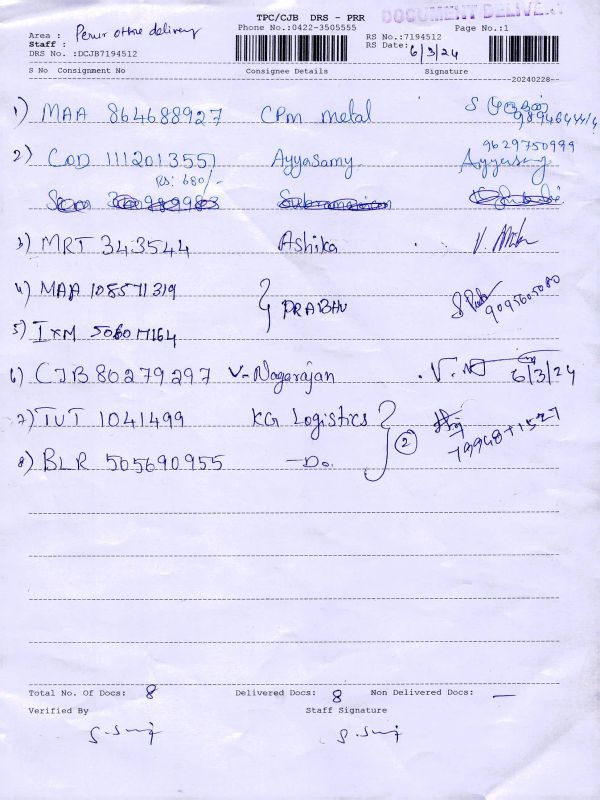 TPC/CJB DRS - PRR
DOCUMENT DELIVERY
Area : Perur office delivery
Phone No.:0422-3505555
Page No.:1
Staff :
RS No.:7194512
DRS No. :DCJB7194512
RS Date: 6/3/24
S No Consignment No Consignee Details Signature
20240228
1) MAA 864688927 CPM metal
2) COD 1112013557 Ayyasamy 9629750999
Rs: 680/- Ayyasamy
3) MRT 343544 Ashika
4) MAA 108571319 PRABHU
5) IXM
6) CJB 80279297 V-Nagarajan 6/3/24
7) TUT 1041499 KG Logistics
8) BLR 505690955 -Do. 2
Total No. Of Docs: 8 Delivered Docs: 8 Non Delivered Docs: —
Verified By Staff Signature